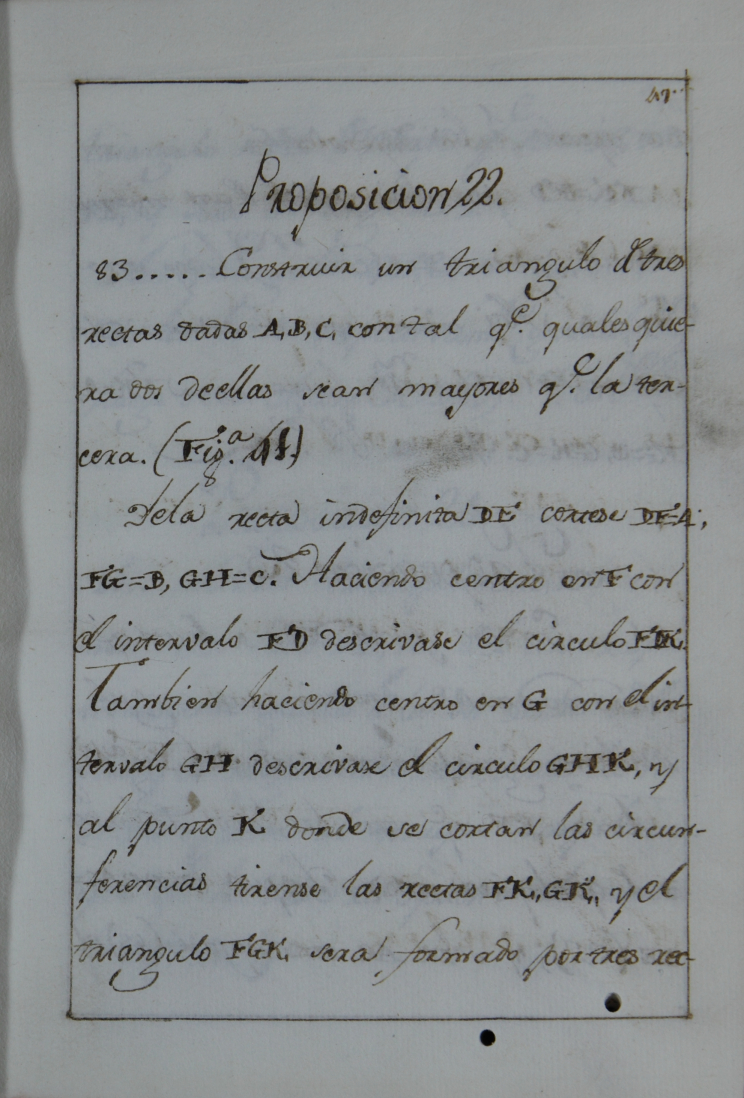 47.
Proposicion 22.
83..... Construir un triangulo d.e tres
rectas dadas A, B, C, con tal q.e quales quie-
ra dos de ellas sean mayores q.e la ter-
cera. (Fig.a 41.)
De la recta indefinita DE cortese DF=A;
FG=B, GH=C. Haciendo centro en F con
el intervalo FD descrivase el circulo FDK.
Tambien haciendo centro en G con el in-
tervalo GH descrivase el circulo GHK, y
al punto K donde se cortan las circun-
ferencias tirense las rectas FK, GK, y el
triangulo FGK, sera formado por tres rec-